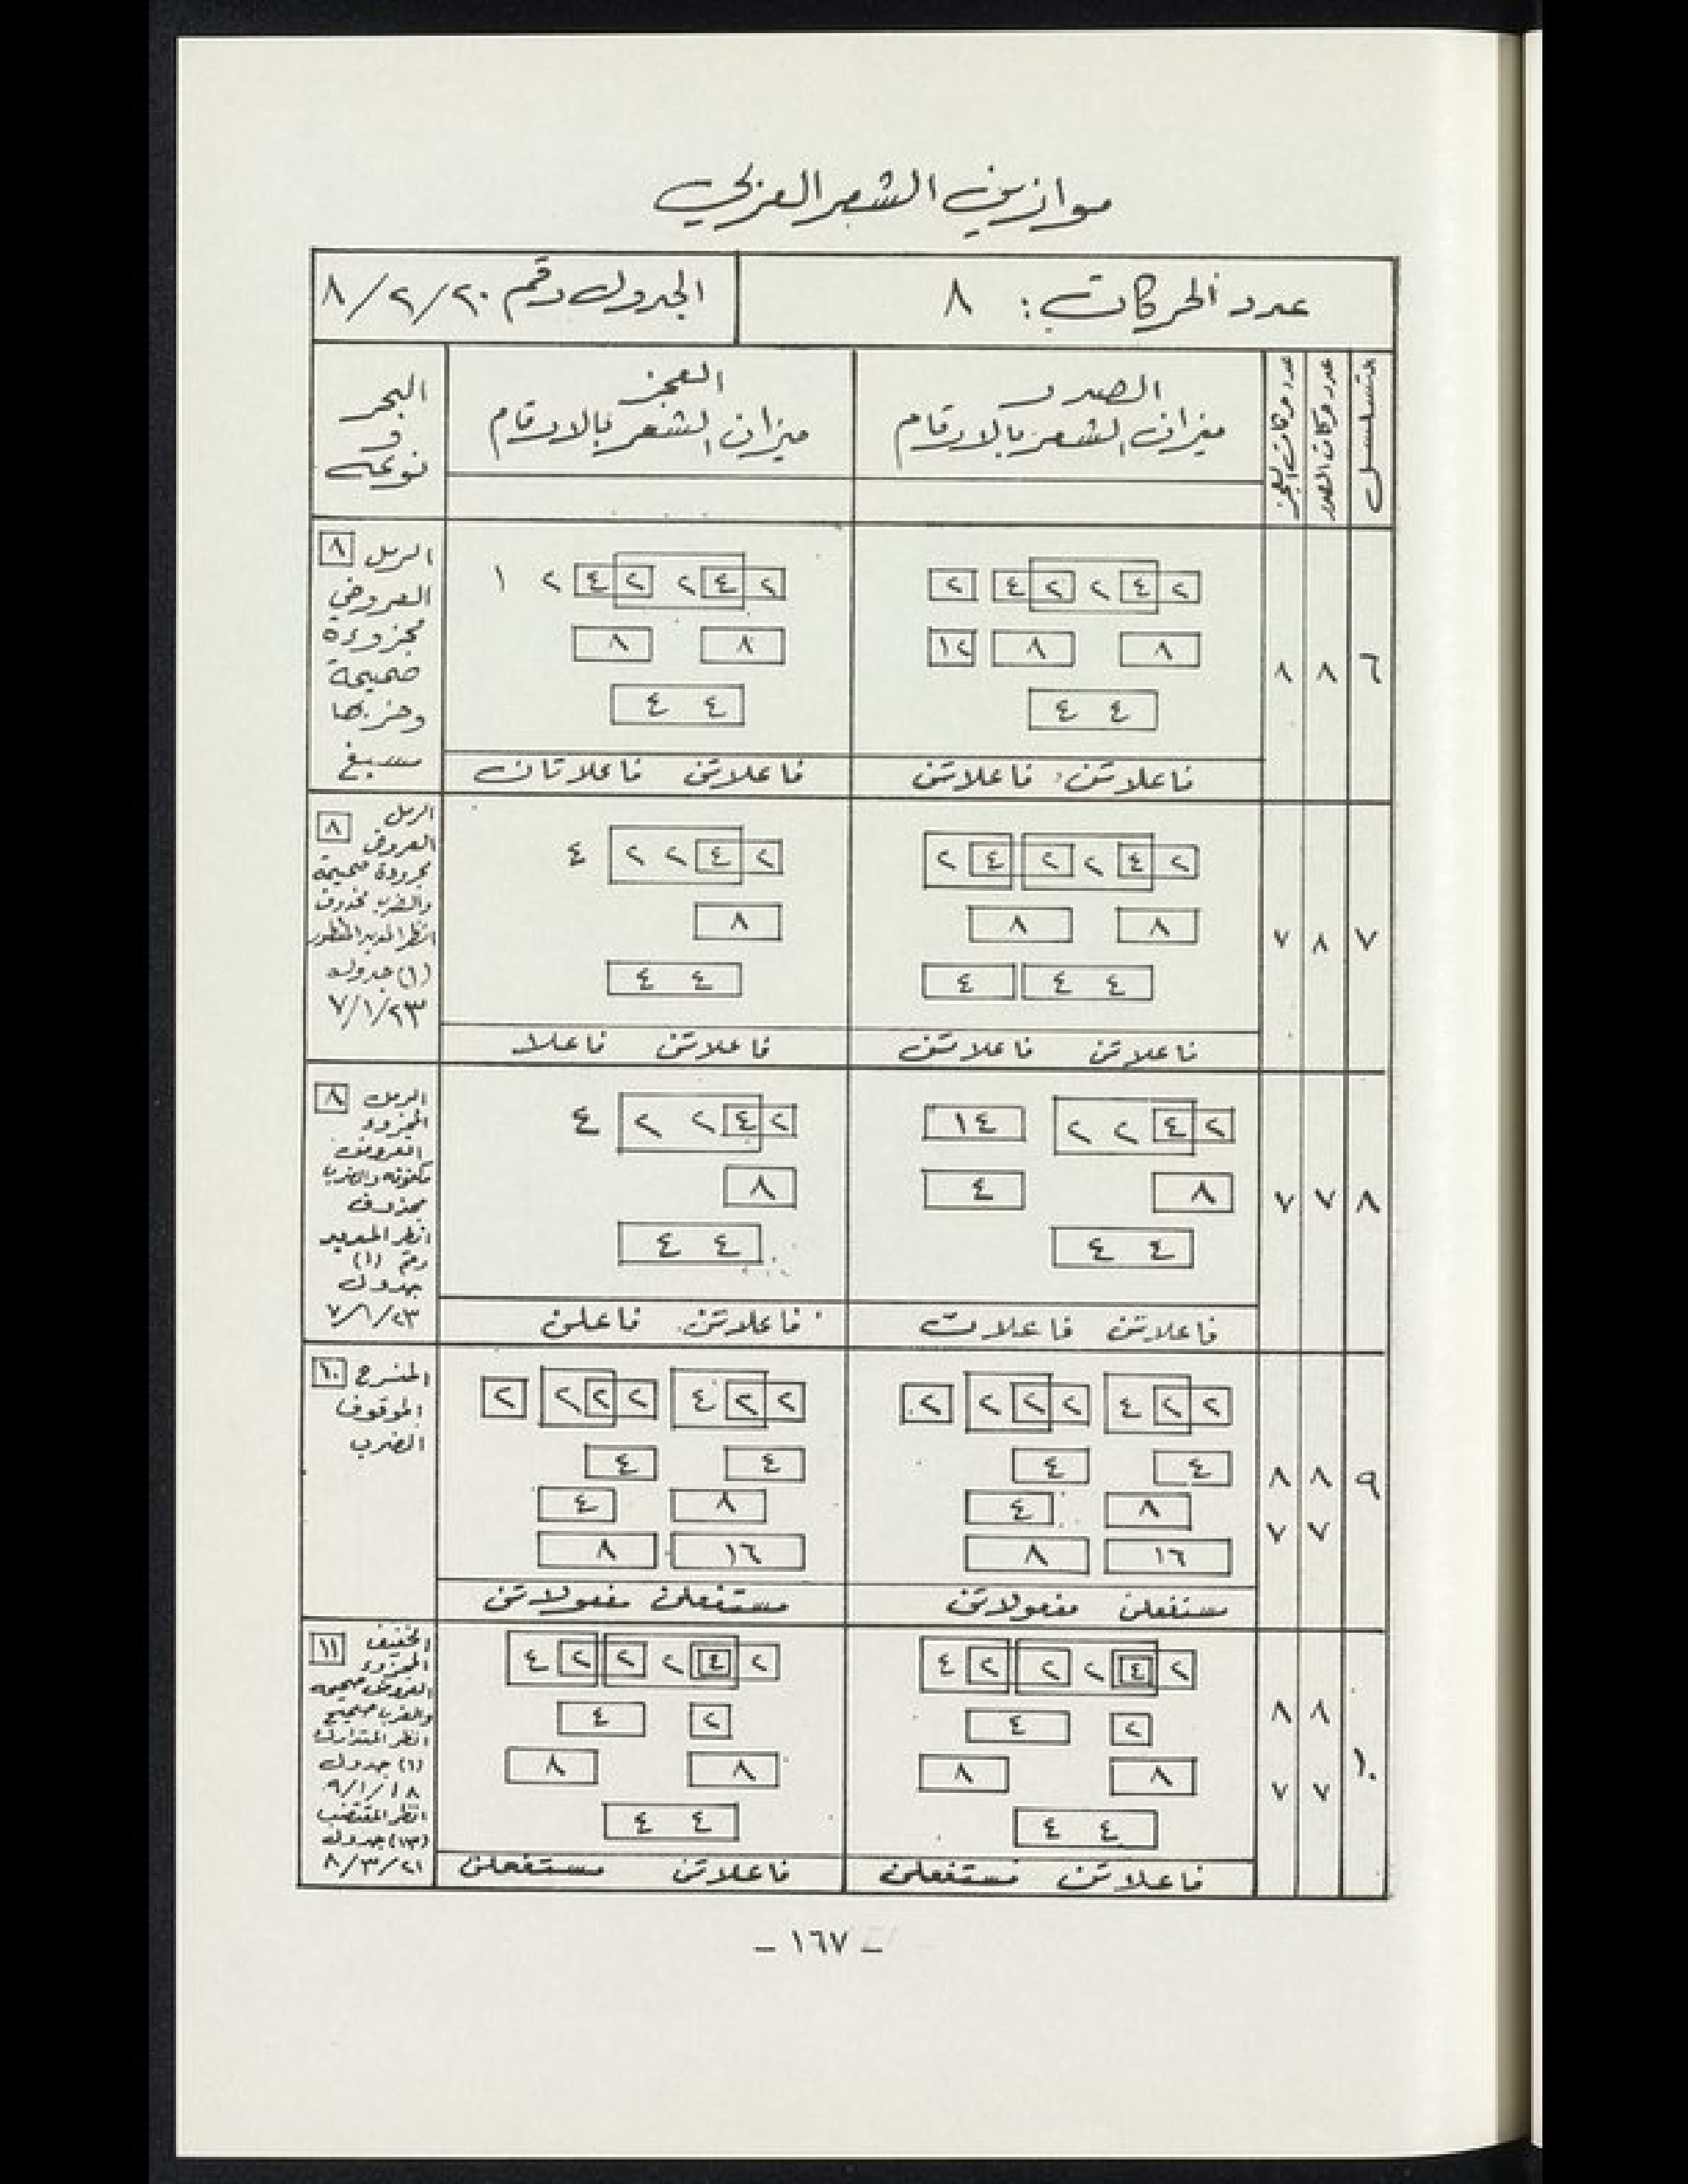 موازين الشعر العربي
عدد الحركات : ٨
الجدول رقم ٨/٢/٢٠
متسلسل
عدد حركات الصدر
عدد حركات العجز
الصدر
ميزان الشعر بالارقام
العجز
ميزان الشعر بالارقام
البحر
و
نوعه
٦
٨
٨
٢ ٤ ٢ ٢ ٤ ٢
٨ ٨ ١٢
٤ ٤
فاعلاتن فاعلاتن
٢ ٤ ٢ ٢ ٤ ٢ ١
٨ ٨
٤ ٤
فاعلاتن فاعلاتان
الرمل ٨
العروض
مجزوءة
صحيحة
وضربها
مسبغ
٧
٨
٧
٢ ٤ ٢ ٢ ٤ ٢
٨ ٨
٤ ٤ ٤
فاعلاتن فاعلاتن
٢ ٤ ٢ ٢ ٤
٨
٤ ٤
فاعلاتن فاعلا
الرمل
٨
العروض
صحيحة
والضرب محذوف
انظر المديد
(١) جدول
٧/١/٢٣
٨
٧
٧
٢ ٤ ٢ ٢ ١٤
٨ ٤
٤ ٤
فاعلاتن فاعلات
٢ ٤ ٢ ٢ ٤
٨
٤ ٤
فاعلاتن فاعلن
الرمل ٨
المجزوء
العروض
مكفوفه والضرب
محذوف
انظر المديد
رقم (١)
جدول
٧/١/٢٣
٩
٨ ٨
٧ ٧
٢ ٢ ٤ ٢ ٢ ٢ ٢
٤ ٤
٨ ٤
١٦ ٨
مستفعلن مفعولاتن
٢ ٢ ٤ ٢ ٢ ٢ ٢
٤ ٤
٨ ٤
١٦ ٨
مستفعلن مفعولاتن
المنسرح ١٠
الموقوف
الضرب
١٠
٨ ٨
٧ ٧
٢ ٤ ٢ ٢ ٢ ٤
٢ ٤
٨ ٨
٤ ٤
فاعلاتن مستفعلن
٢ ٤ ٢ ٢ ٢ ٤
٢ ٤
٨ ٨
٤ ٤
فاعلاتن مستفعلن
الخفيف ١١
المجزوء
العروض صحيحه
والضرب صحيح
انظر المتدارك
جدول
٩/١/١٨
انظر المقتضب
(١٣) جدول
٨/٣/٢١
– ١٦٧ –